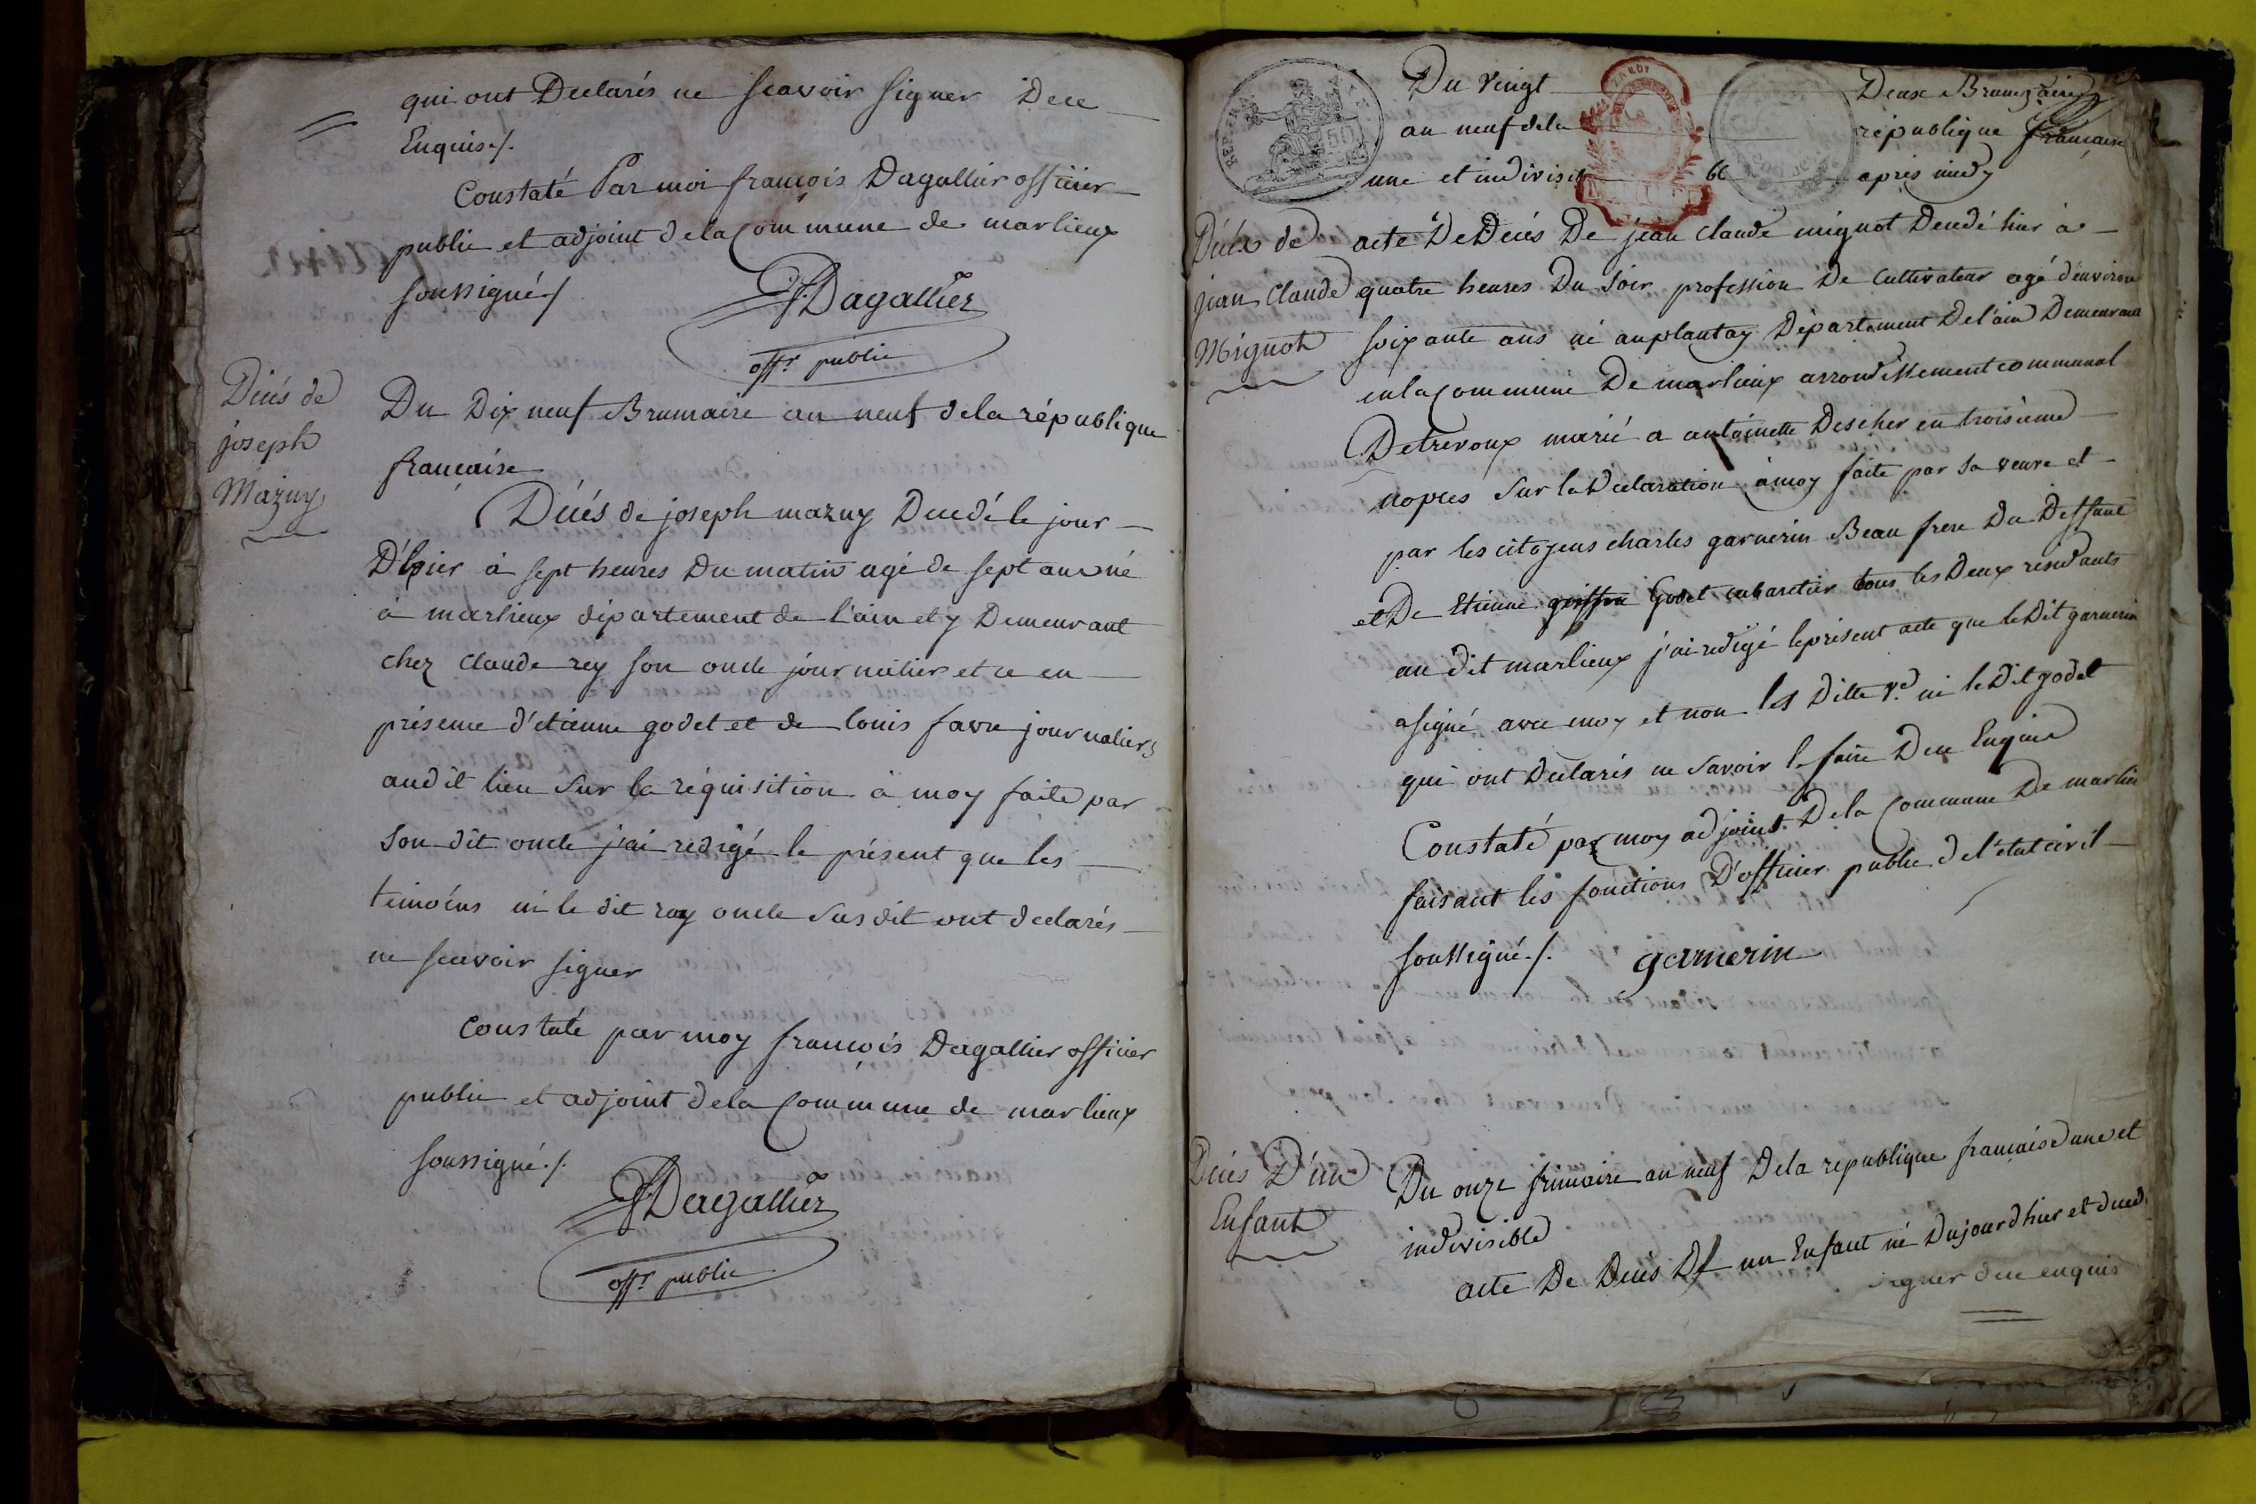 qui ont Declarés ne scavoir signer Dece
Enquis./.
Constaté Par moi françois Dagallier officier
public et adjoint dela Commune de marlieux
soussigné./
Dagallier
offr. public
Décés de
joseph
Mazuy
Du Dix neuf Brumaire an neuf dela république
française
Décés de joseph mazuy Decedé le jour
D'hier à sept heures Du matin agé de sept ans né
à marlieux département de l'ain et y Demeurant
chez claude rey son oncle journalier et ce en
présence d'etienne godet et de louis favre journaliers
audit lieu sur la réquisition à moy faite par
son dit oncle j'ai redigé le présent que les
temoins ni le dit rey oncle susdit ont declarés
ne scavoir signer
Constaté par moy françois Dagallier officier
public et adjoint dela Commune de marlieux
soussigné./.
Dagallier
offr. public
Du vingt Deux Brumaire
an neuf dela république française
une et indivisi après midy
Décés de
jean Claude
Mignot
acte De Décés De jean claude mignot Decedé hier à
quatre heures Du soir profession De cultivateur agé d'environ
soixante ans né auplantay Département De l'ain Demeurant
en la Commune De marlieux arrondissement communal
Detrevoux marié a antoinette Descher en troisieme
nopces sur la Declaration à moy faite par sa veuve et
par les citoyens charles garnerin Beau frere Du Deffunt
et De Etienne Godet cabaretier tous les Deux residants
au dit marlieux j'ai redigé leprésent acte que le Dit garnerin
asigné avec moy et non les Ditte ve. ni le Dit godet
qui ont Declarés ne savoir le faire Dece Enquis
Constaté par moy adjoint Dela Commune De marlieu
faisant les fonctions D'officier public de l'etat civil
soussigné./. garnerin
Décés D'un
Enfant
Du onze frimaire an neuf Dela republique française une et
indivisible
acte De Décés De un Enfant né Dujourdhier et deced
signer dece enquis